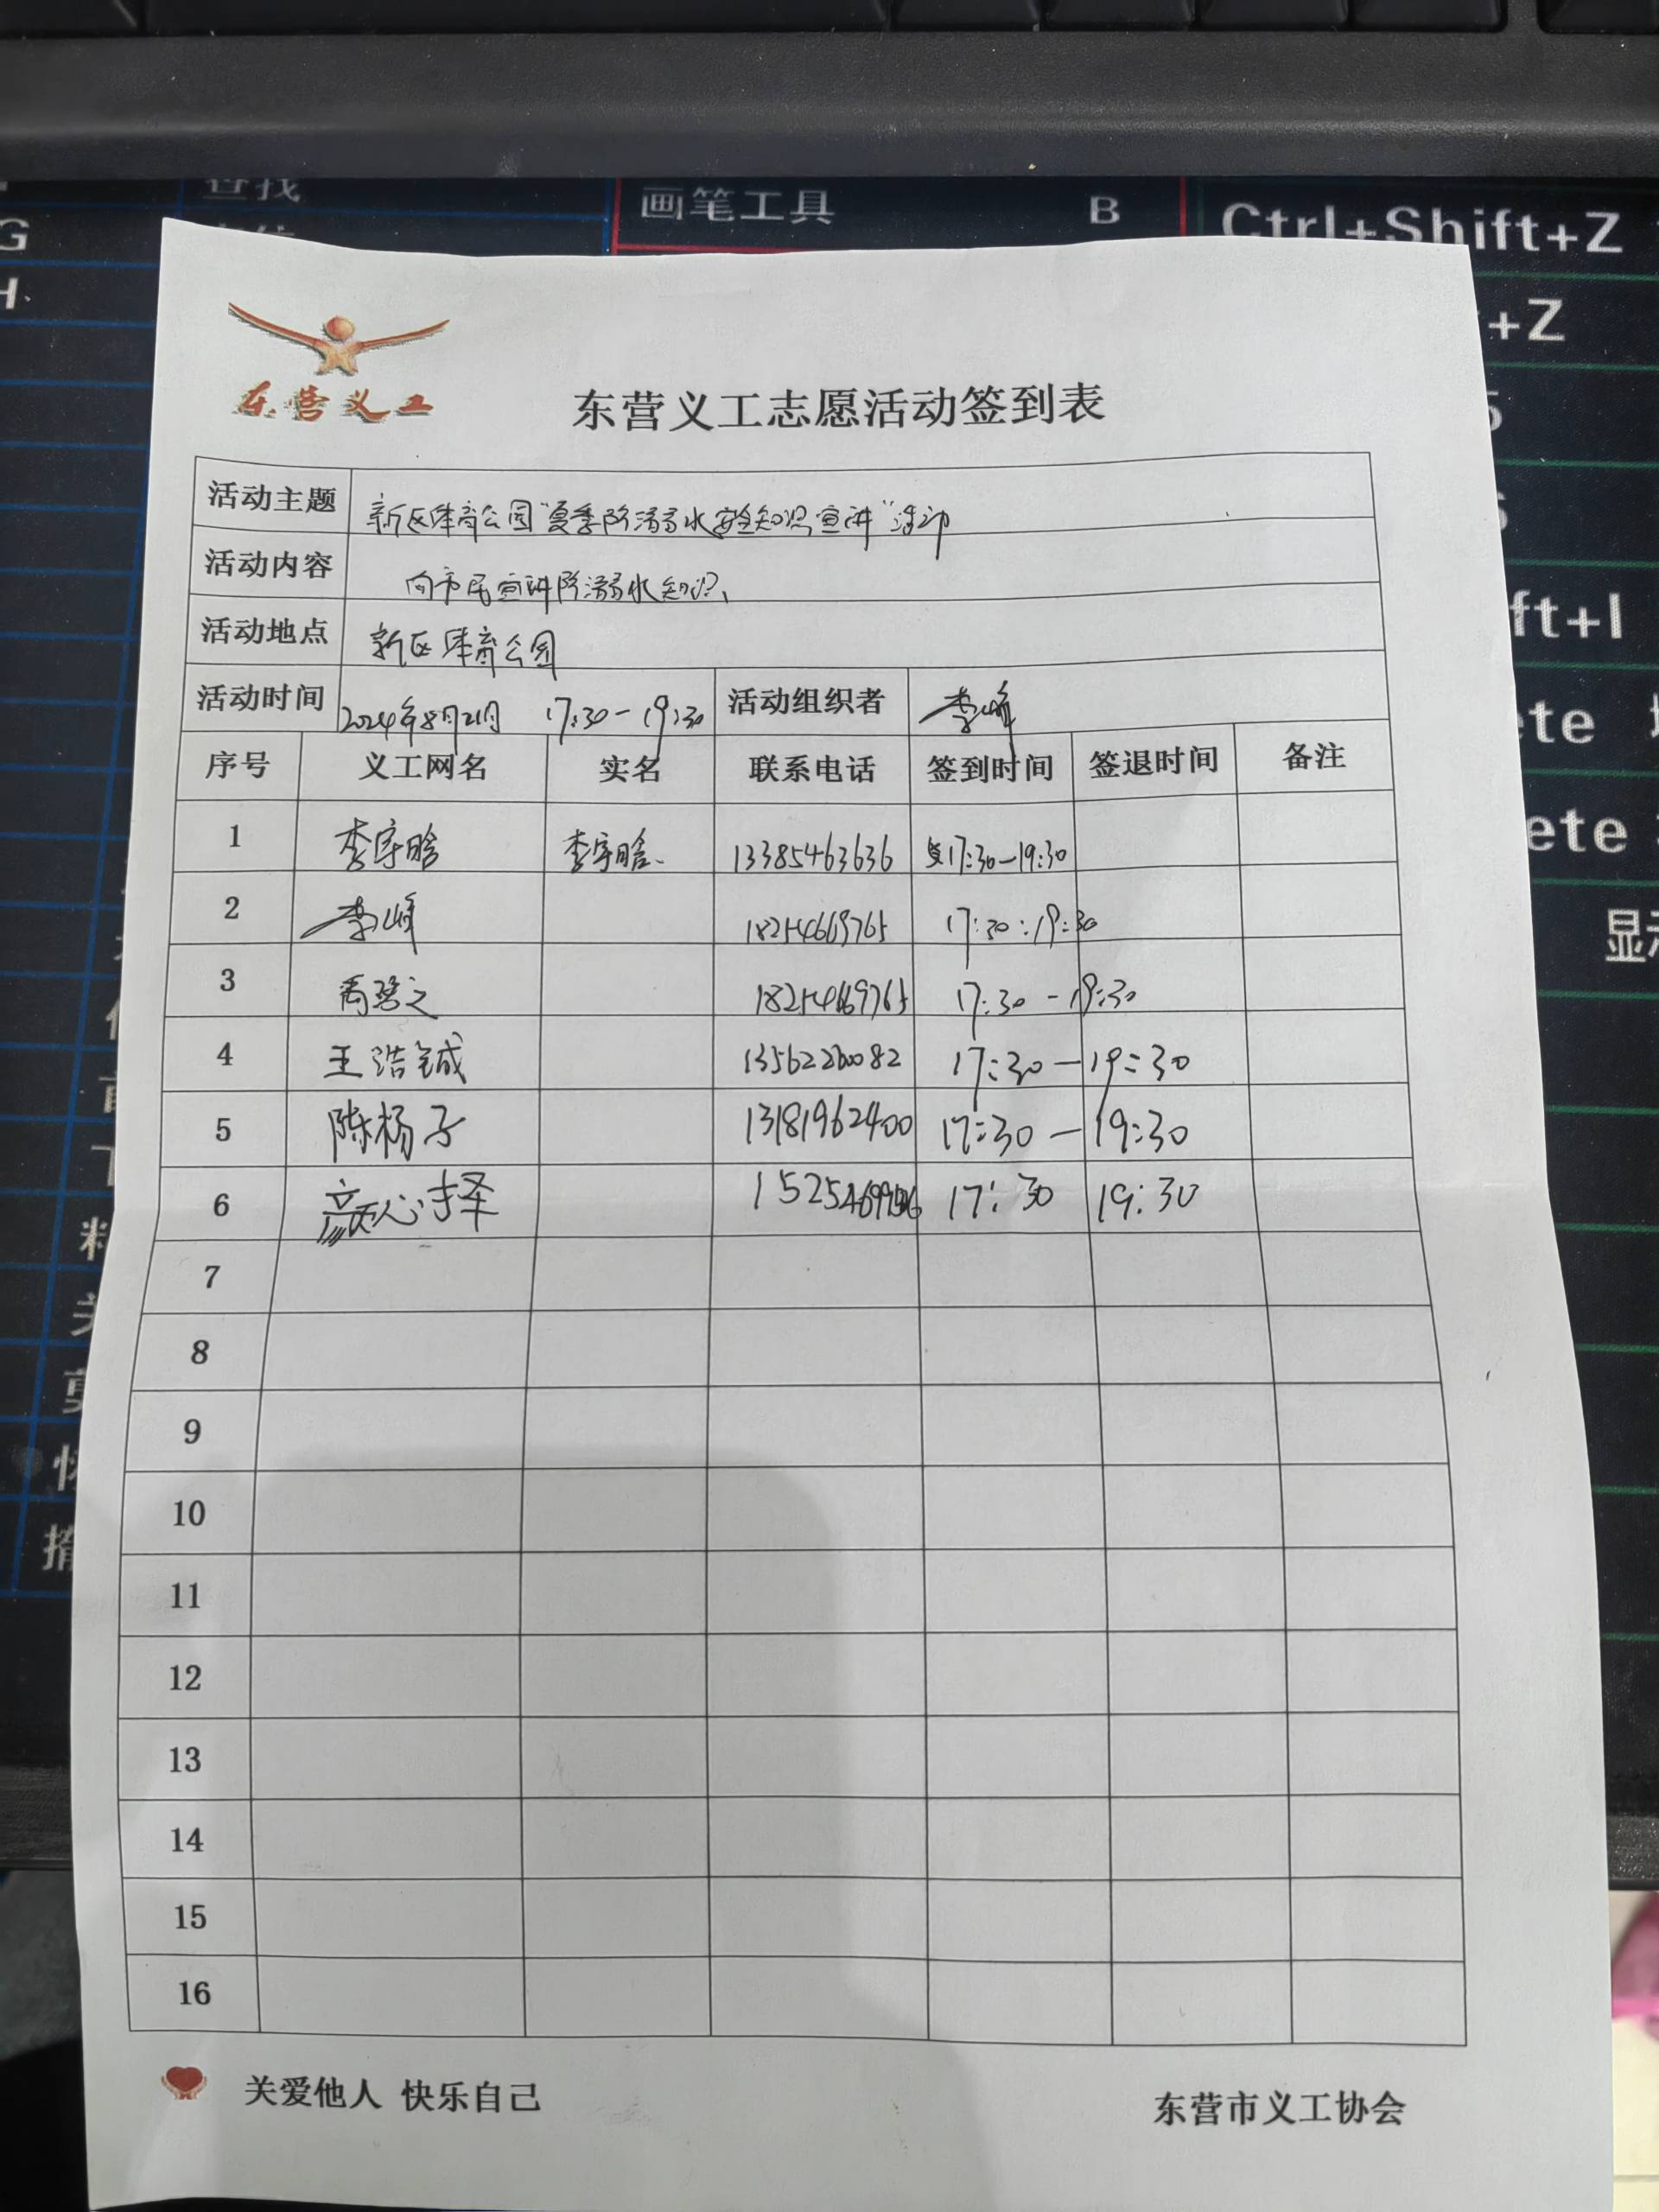 查找
画笔工具 B Ctrl+Shift+Z
G
H
+Z
东营义工
东营义工志愿活动签到表
活动主题 新区体育公园"夏季防溺水安全知识宣讲"活动
活动内容 向市民宣讲防溺水知识、
ft+I
活动地点 新区体育公园
活动时间 2024年8月21日 17:30-19:30 活动组织者 李峰
ete
序号 义工网名 实名 联系电话 签到时间 签退时间 备注
1 李宇晗 李宇晗、 13385463636 17:30-19:30
ete
2 李峰 18254669765 17:30:19:30
显示
3 18254669765 17:30-19:30
4 王浩铖 13562260082 17:30-19:30
5 陈杨子 13181962400 17:30-19:30
6 颜心择 17:30 19:30
7
8
9
10
11
12
13
14
15
16
关爱他人 快乐自己
东营市义工协会